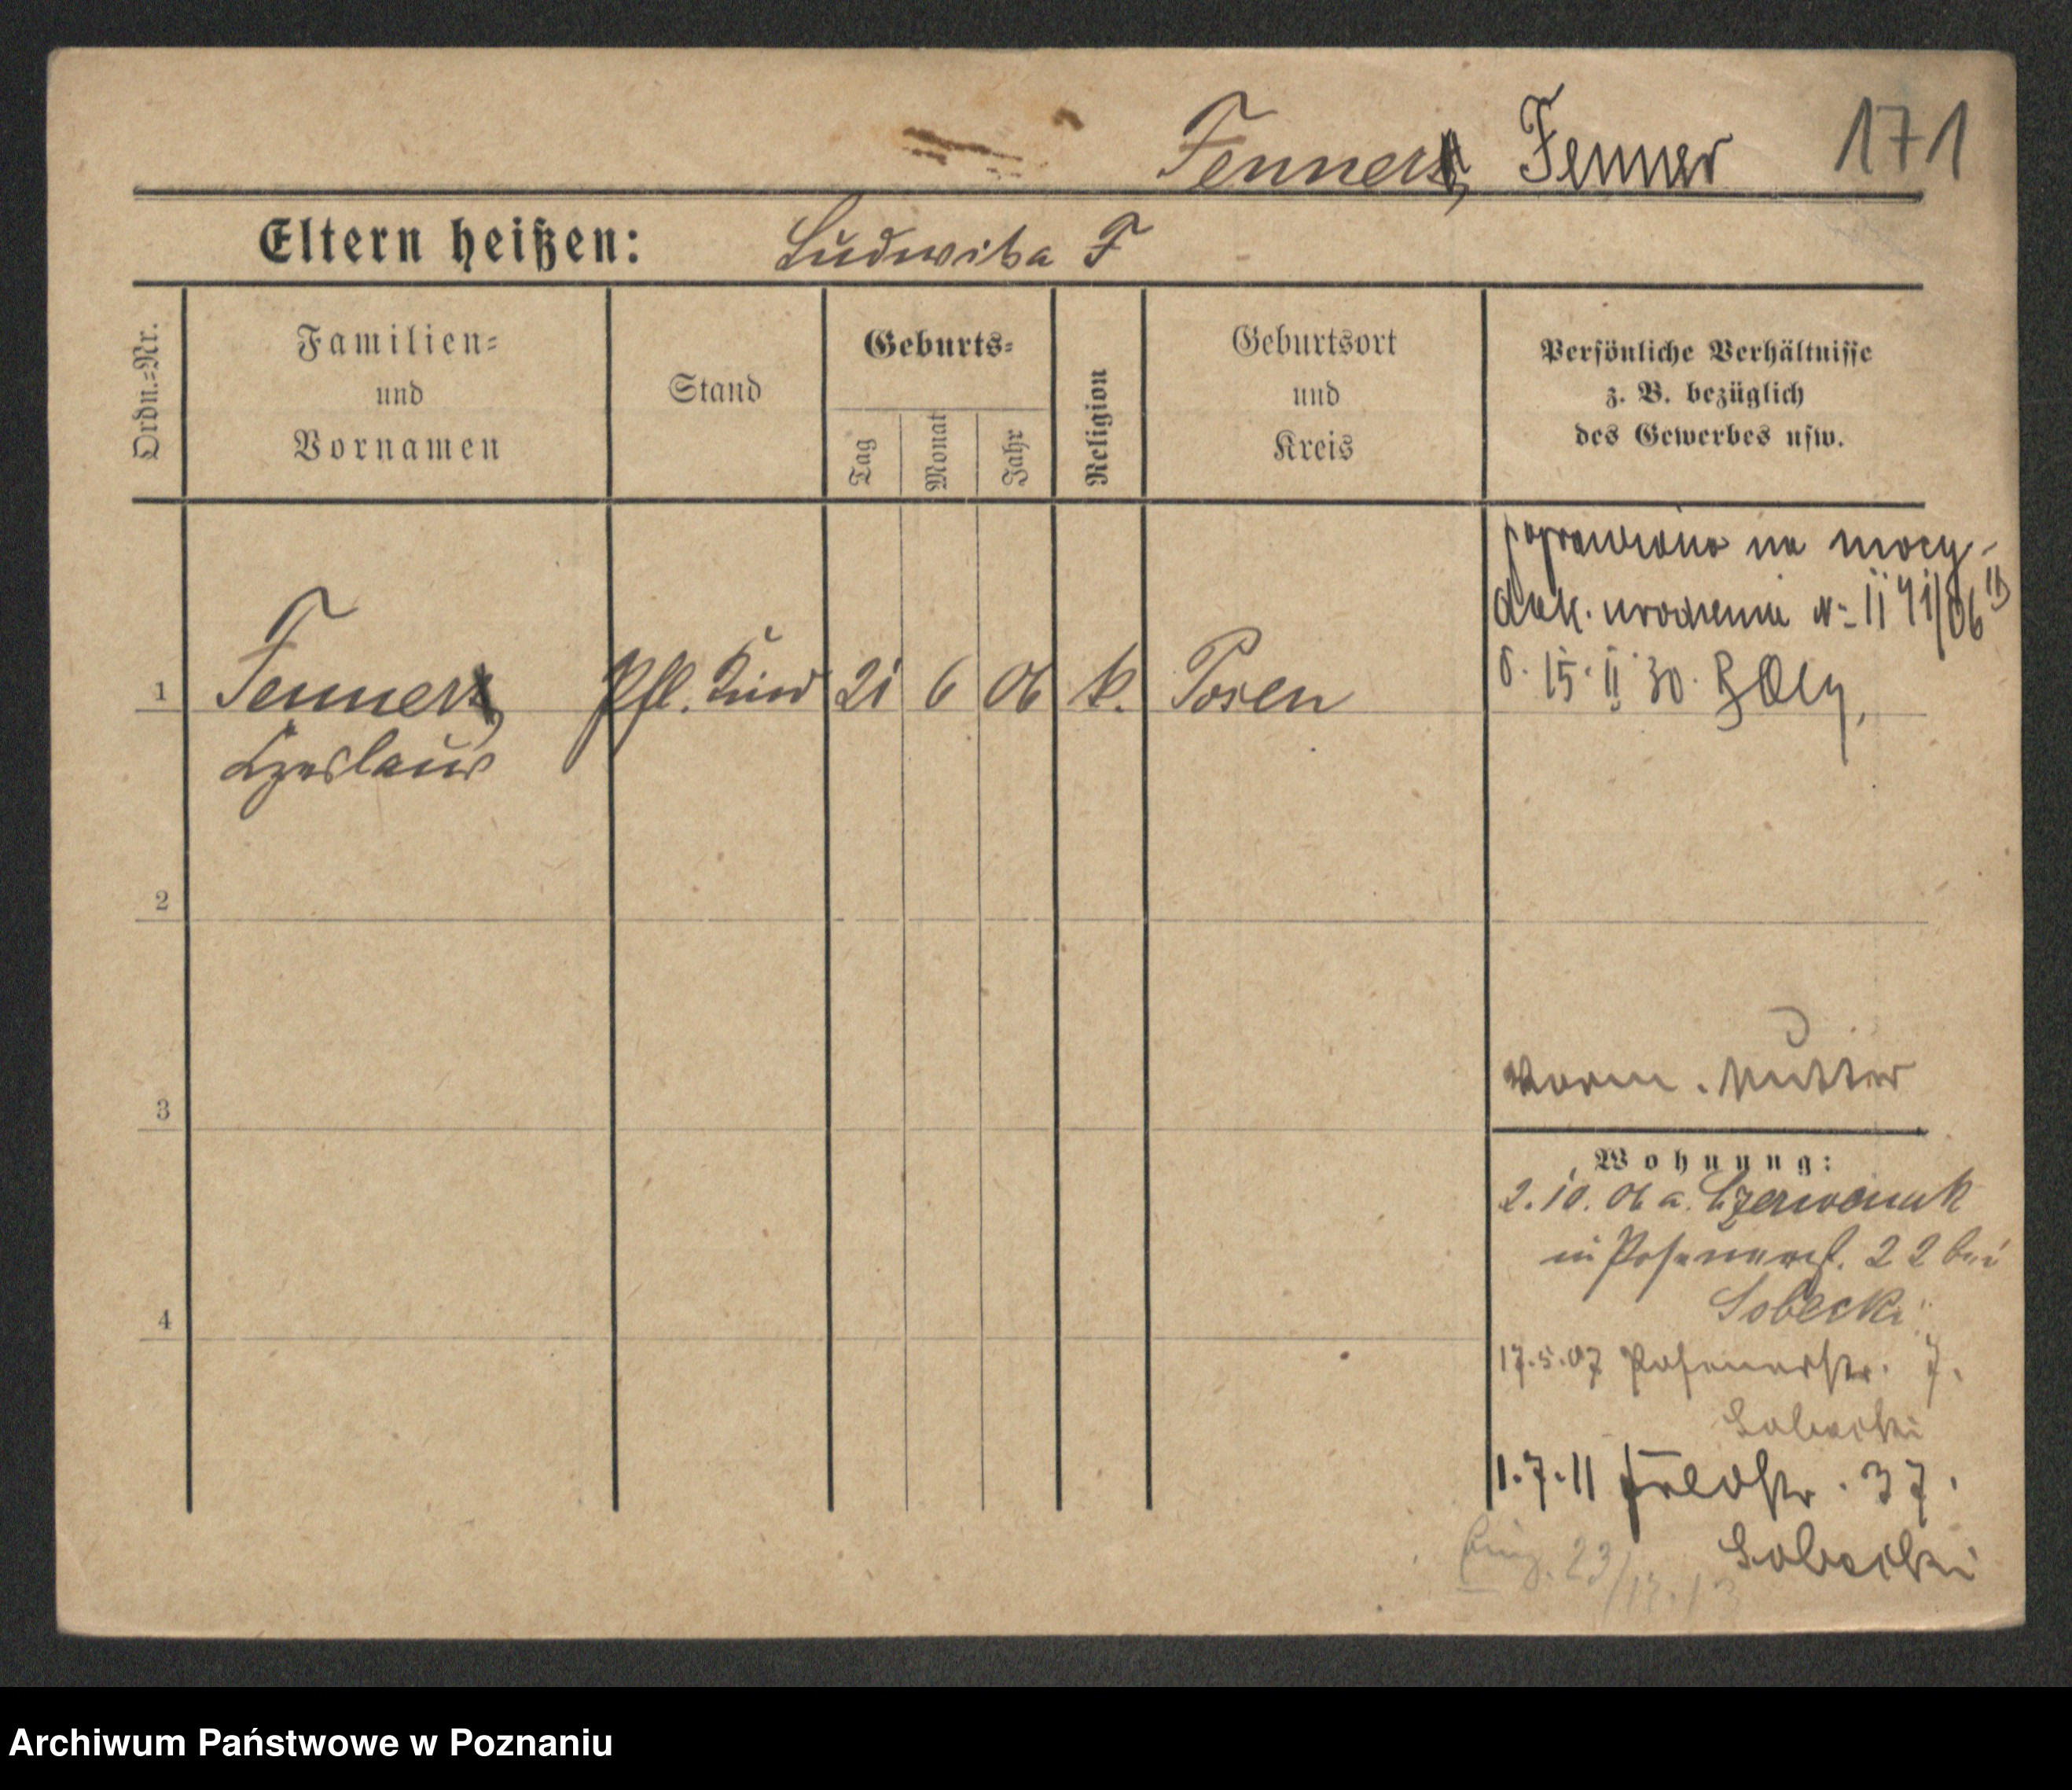 Fenner, Fenner 171
Eltern heißen: Ludwika F
Ordn.=Nr.
Familien=
und
Vornamen
Stand
Geburts=
Tag
Monat
Jahr
Religion
Geburtsort
und
Kreis
Persönliche Verhältnisse
z. B. bezüglich
des Gewerbes usw.
poprawiono na mocy
urodzenia № 1141/06
15. II 30.
1 Fenner, Pfl. Kind 21 6 06 k. Posen
Czeslaus
2
Vorm. Mutter
3
Wohnung:
2. 10. 06 a. Czerwonak
in Posenerst. 22 bei
Sobecki
4
17.5.07 Posenerstr. 7.
Sobecki
1.7.11 Feldstr. 37.
Sobecki
Archiwum Państwowe w Poznaniu